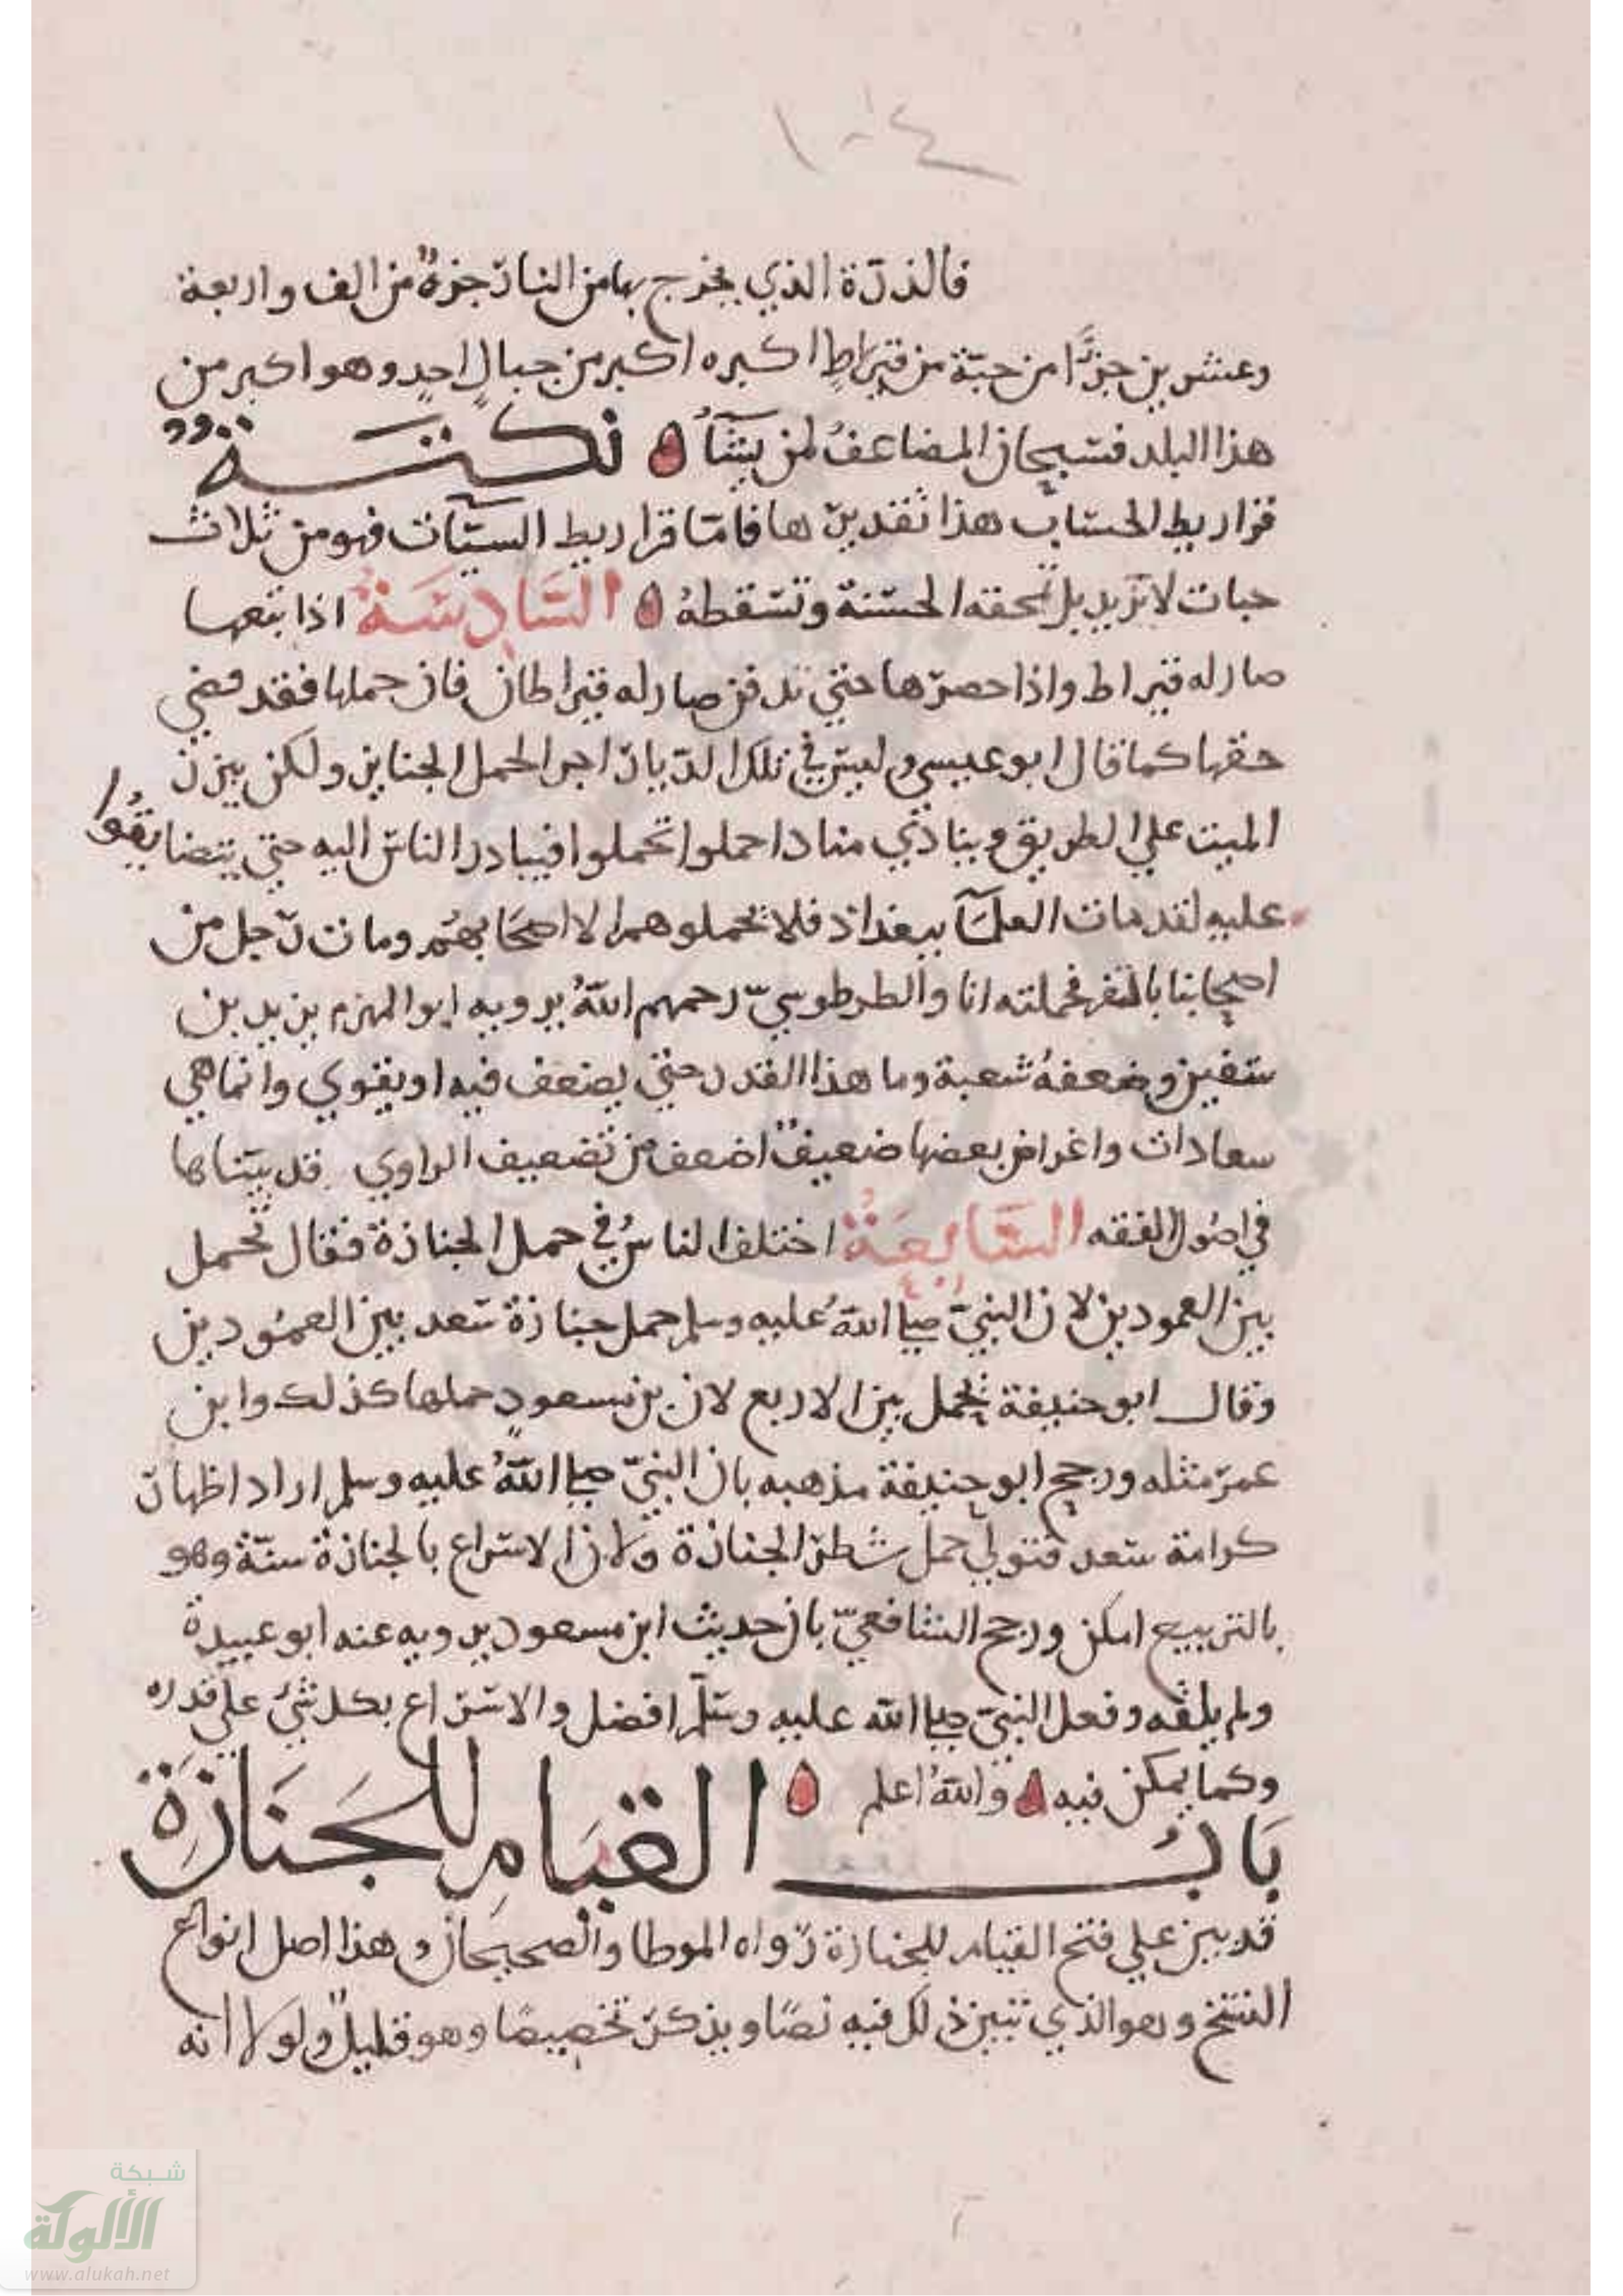 ١٠٤
فالذرة الذي يخرج بها من النار جزءٌ من الف واربعة
وعشرين جزءًا من حبّة من قيراطٍ اكبره اكبر من جبال احدٍ وهو اكبر من
هذا البلد فسبحان المضاعفُ لمن يشآءُ نكتـــةٌ
قراريط الحسّاب هذا تقديرها فامّا قراريط السيّآت فهو من ثلاث
حبات لا تزيد بل تمحقه الحسنة وتسقطهُ السَّادِسَةُ اذا تبعها
صار له قيراط واذا حصرّها حتي تدفن صار له قيراطان فان حملها فقد قضي
حقها كما قال ابو عيسي وليس في تلك الديار اجر الحمل الجنايز ولكن يبرز
الميت علي الطريق وينادي مناد احملوا تحملوا فيبادر الناس اليه حتي يتضايقُوا
عليه لقد مات العلمآ ببغداد فلا يحملوهم الا اصحَابهُم ومات رجل من
اصحابنا بالثغر فحملته انا والطرطوسيّ رحمهم اللهُ يرويه ابو المهزم يزيد بن
سفين وضعفهُ شعبة وما هذا القدر حتي يضعف فيه او يقوي وانما هي
سعادات واغراض بعضها ضعيفٌ اضعف من تضعيف الراوي قد بيّناها
في اصُول الفقه السَّابِعَةُ اختلف الناسُ في حمل الجنازة فقال تحمل
بين العمودين لان النبيّ صلي اللهُ عليه وسلم حمل جنازة سعد بين العمُودين
وقال ابو حنيفة يحمل بين الاربع لان بن مسعودٍ حملها كذلك وابن
عمر مثله ورجح ابو حنيفة مذهبه بان النبيّ صلي اللهُ عليه وسلم اراد اظهار
كرامة سعد فتولي حمل شطر الجنازة ولان الاسراع بالجنازة سنّة وهو
بالتربيع امكن ورجح الشافعيّ بان حديث ابن مسعود يرويه عنه ابو عبيدة
ولم يلقه وفعل النبيّ صلي الله عليه وسلّم افضل والاسراع بكل شئ علي قدره
وكما يمكن فيه واللهُ اعلم
بَابُ القيَامِ للجَنَازَةِ
قد بين علي فتح القيام للجنازة رواه الموطا والصحيحان وهذا اصل انواع
النسخ وهو الذي تبين ذلك فيه نصًا ويذكر تخصيصًا وهو قليلٌ ولولا انه
شبكة
الألوكة
www.alukah.net